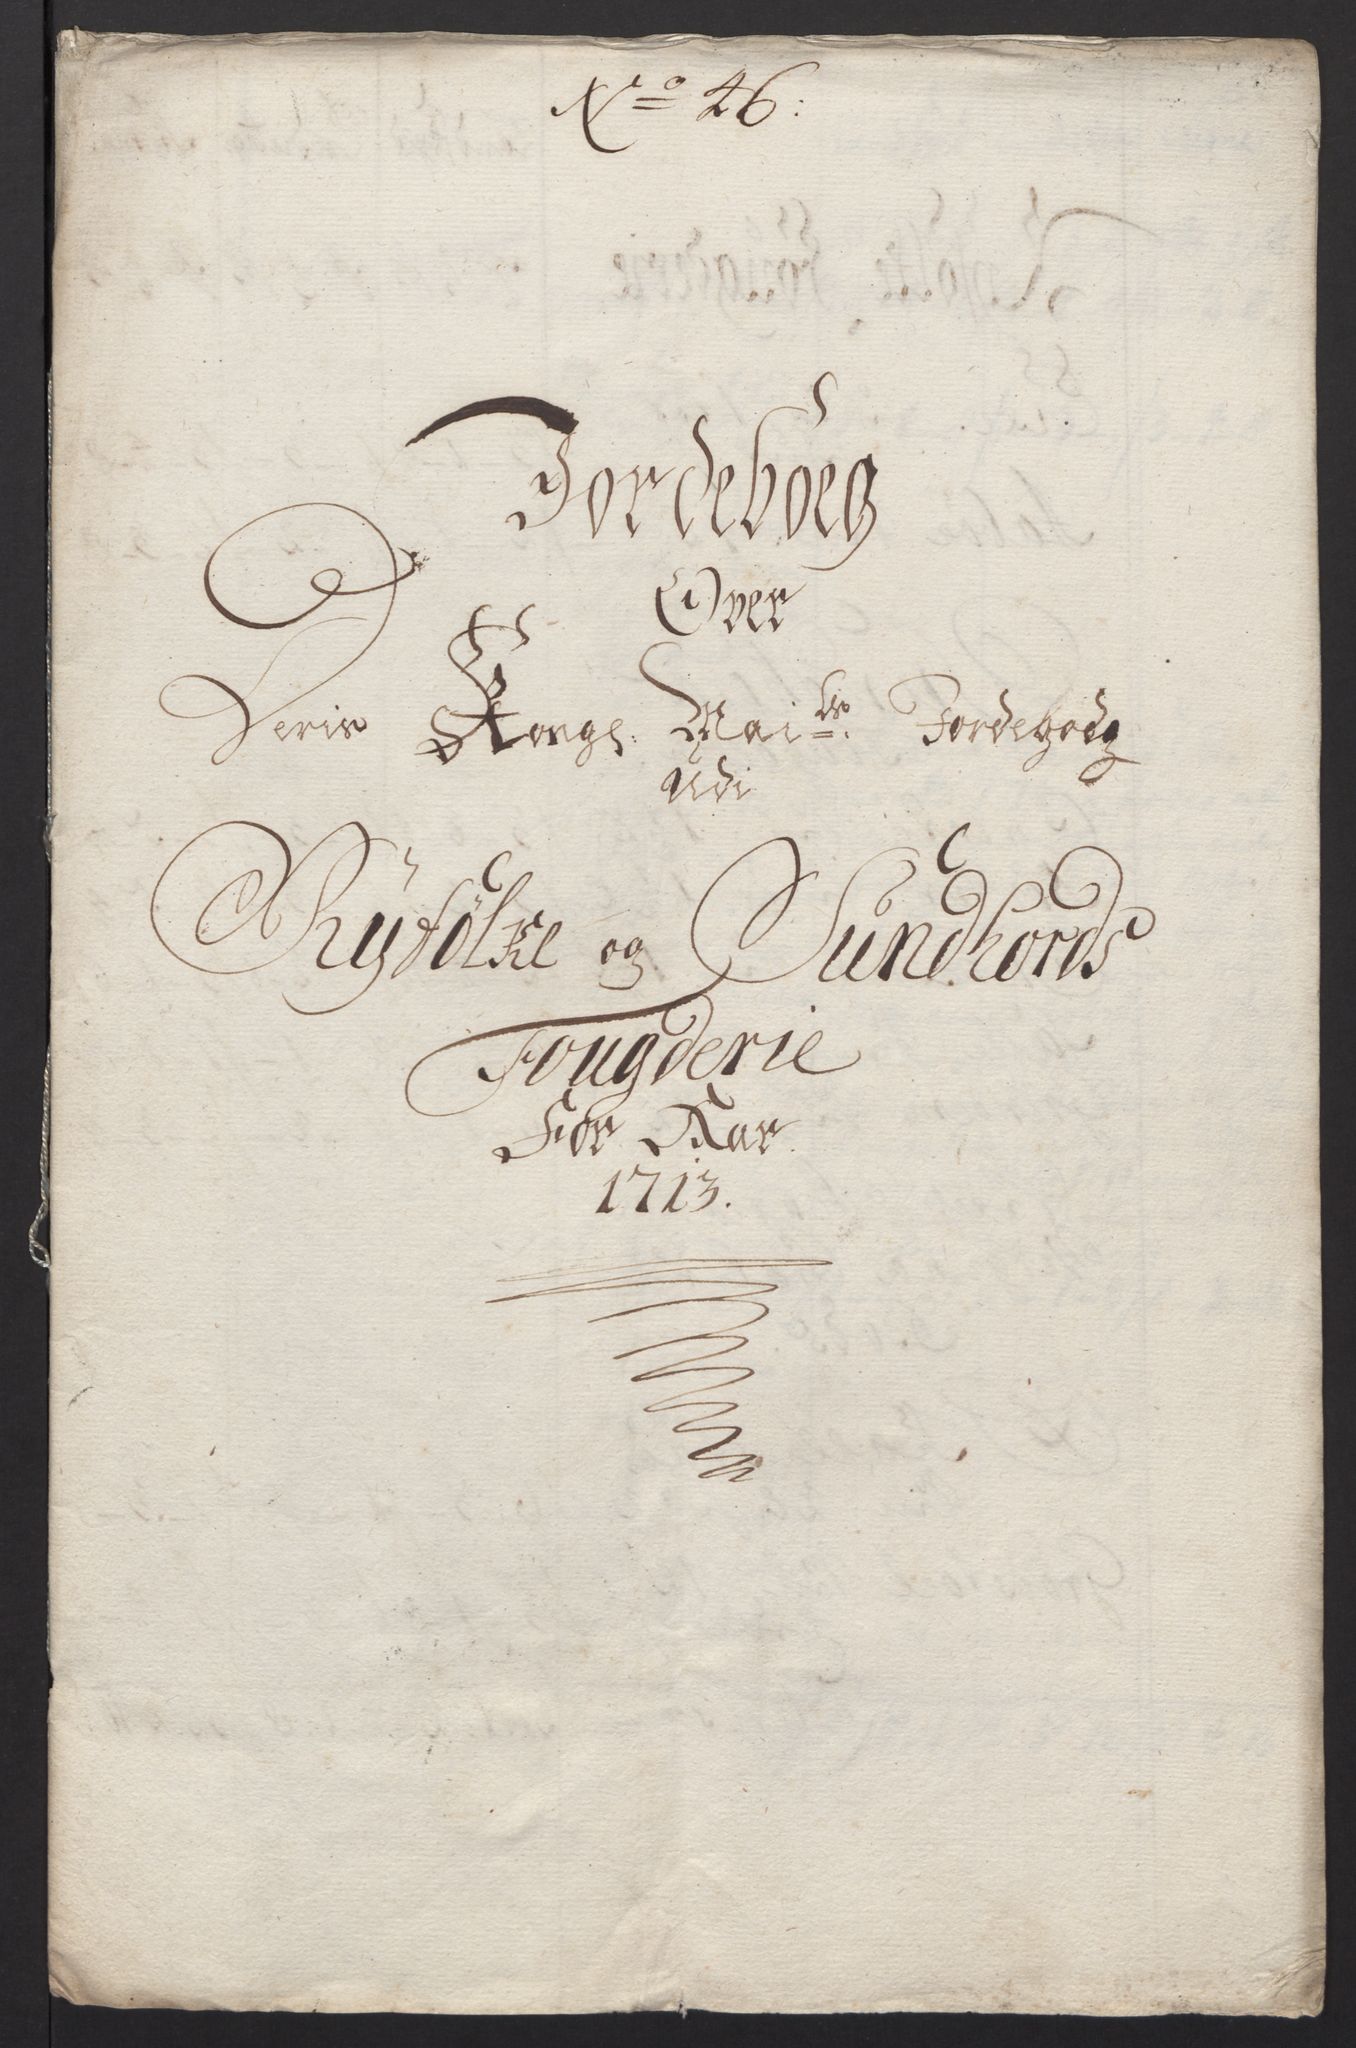 No 46:
Jordeboeg
Over
Deris Kongl: Mai:ts Jordegodz
Udi
Ryfölke og Sundhords
Fougderie
For Aar
1713.